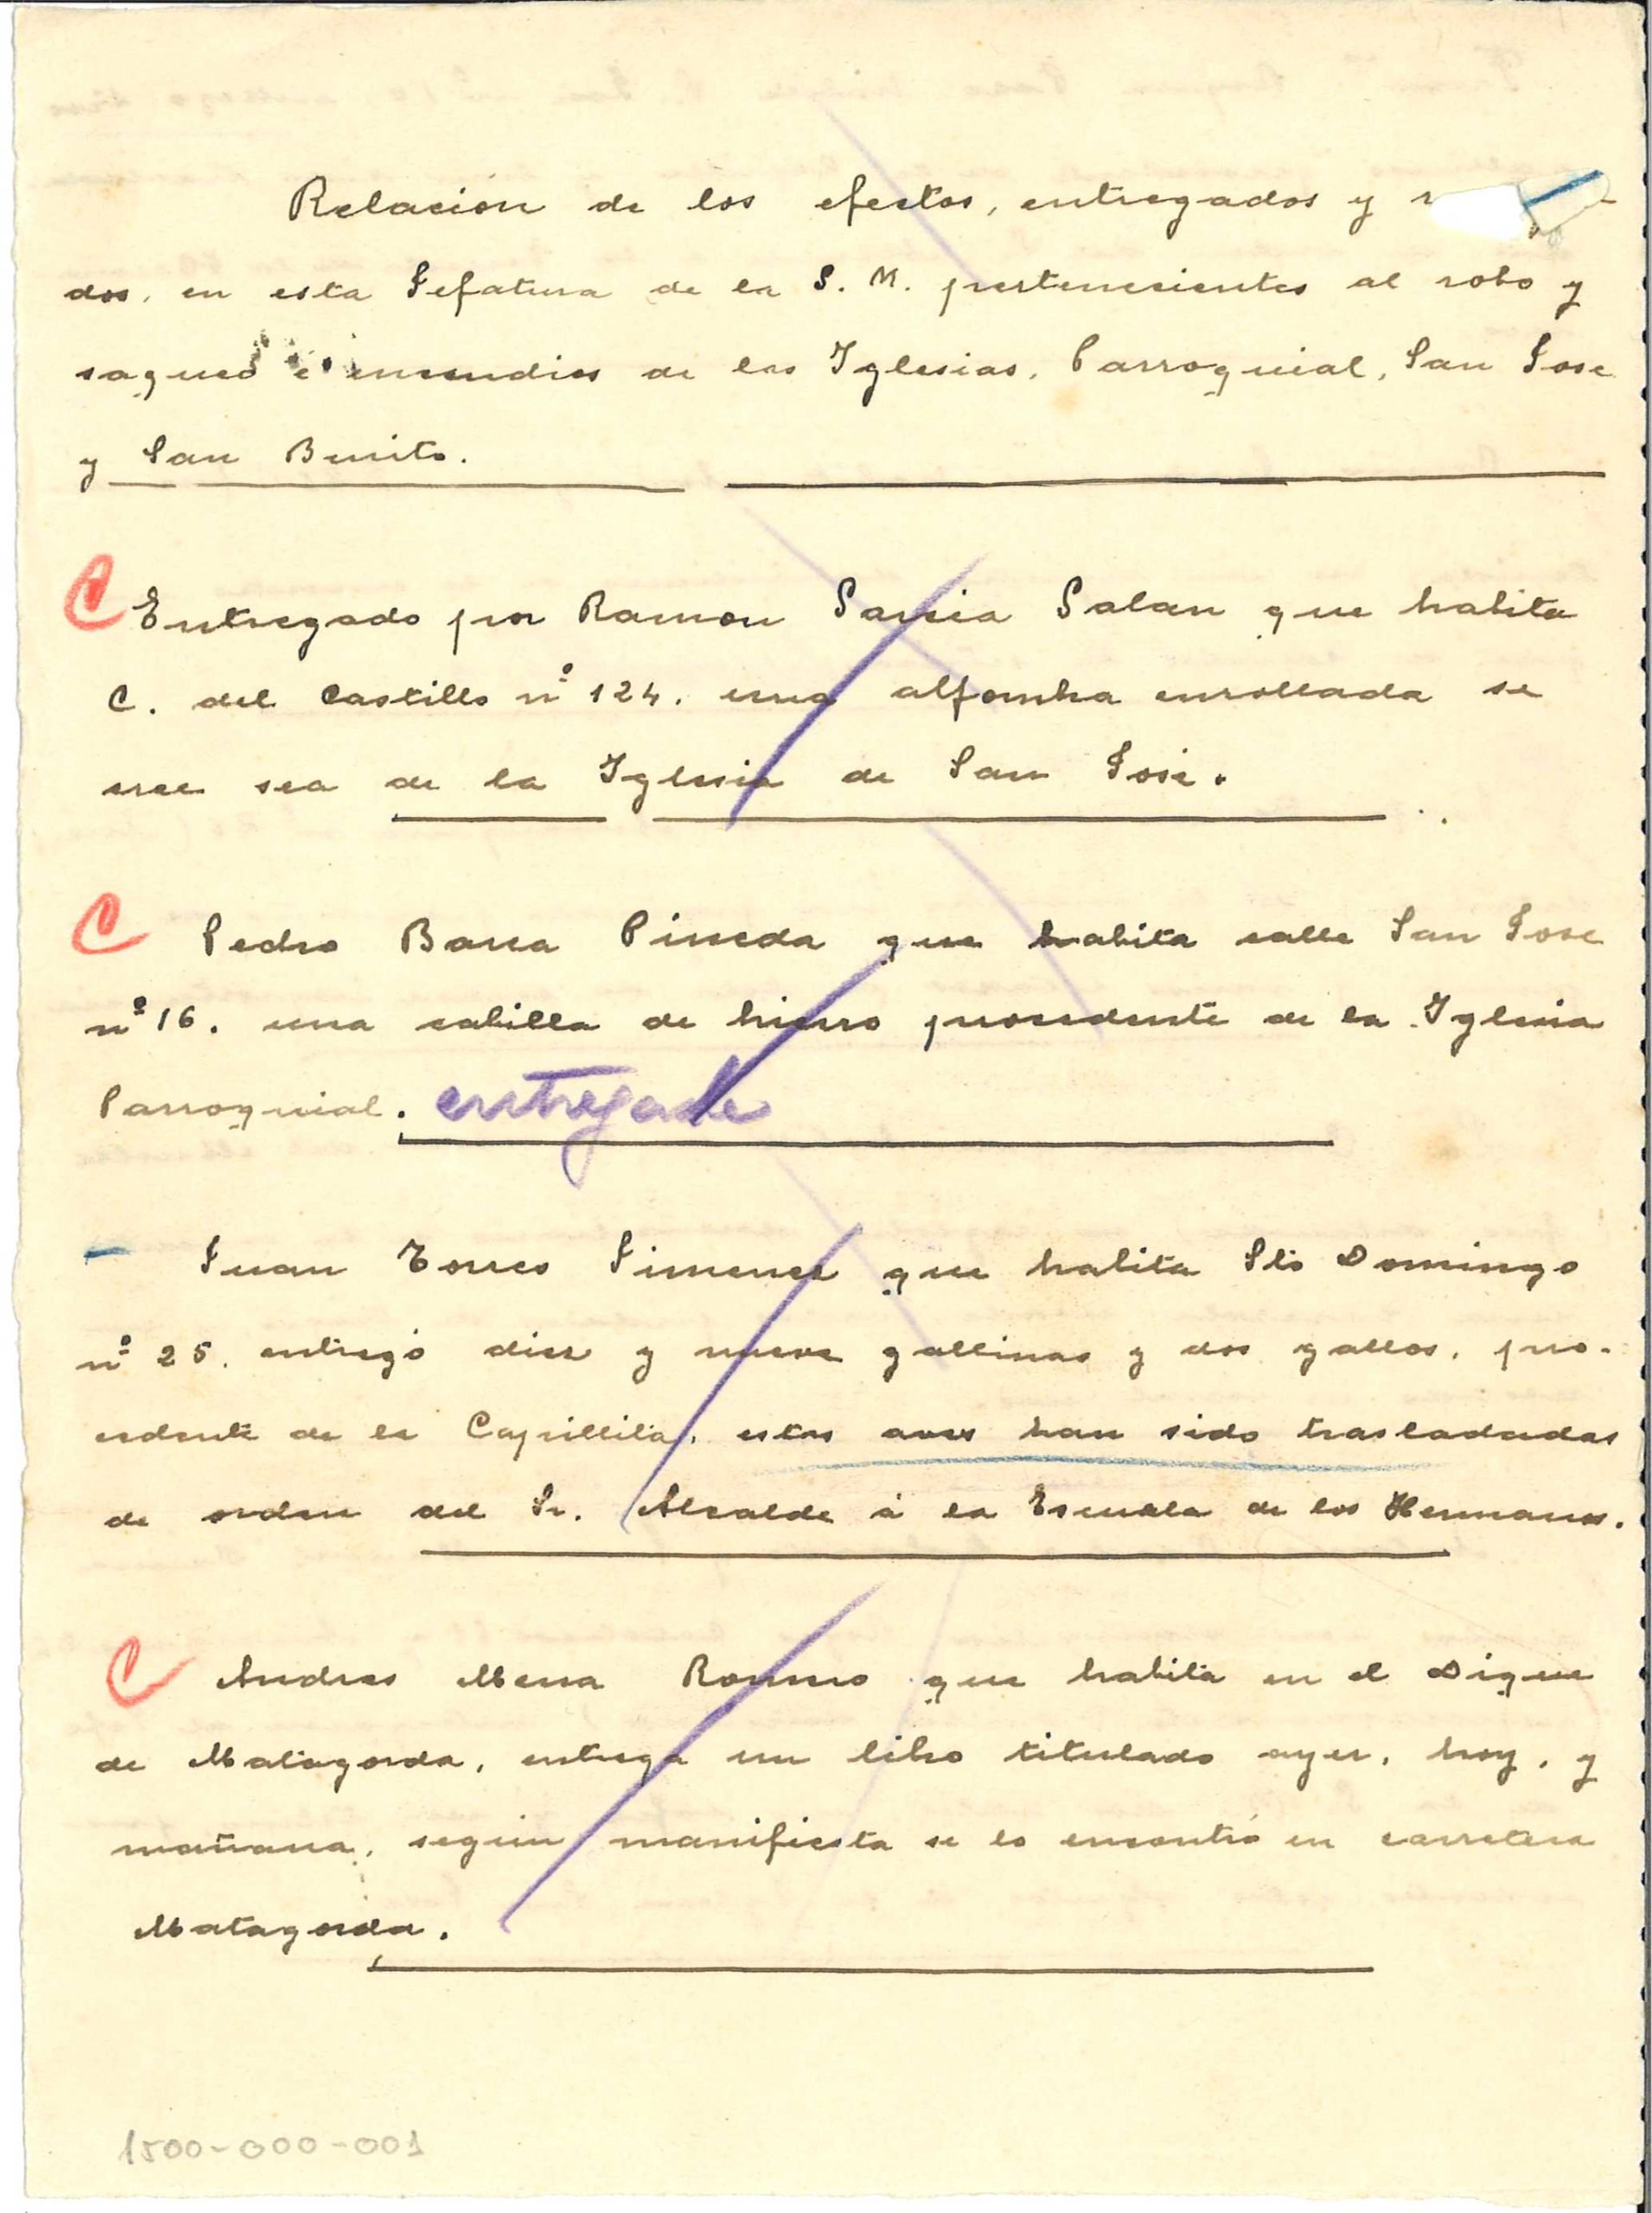 Relación de los efectos, entregados y
dos, en esta Jefatura de la G. M. pertenecientes al robo y
saqueo e incendios de las Iglesias, Parroquial, San Jose
y San Benito.
C Entregado por Ramon Garcia Galan que habita
C. del Castillo nº 124. una alfombra enrollada se
cree sea de la Iglesia de San José.
C Pedro Barea Pineda que habita calle San Jose
nº 16. una cabilla de hierro procedente de la Iglesia
Parroquial. entregado
Juan Torres Jimenez que habita Stº Domingo
nº 25. entregó diez y nueve gallinas y dos gallos, pro-
cedente de la Capillita, estas aves han sido trasladadas
de orden del Sr. Alcalde á la Escuela de los Hermanos.
C Andres Mena Romero que habita en el Dique
de Matagorda, entrega un libro titulado ayer, hoy, y
mañana, según manifiesta se lo encontró en carretera
Matagorda.
1500-000-001